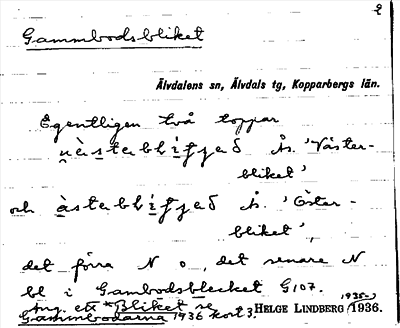 Gammbodsbliket
Älvdalens sn, Älvdals tg, Kopparbergs län.
Egentligen två toppar
Ås. 'Väster-
bliket'
och Ås. 'Öster-
bliket',
det förra N o, det senare N
bl i Gambodsblecket G107.
Ang. etc *Bliket se
Gammbodarna 1936 kort 3. HELGE LINDBERG 1936.
1935-